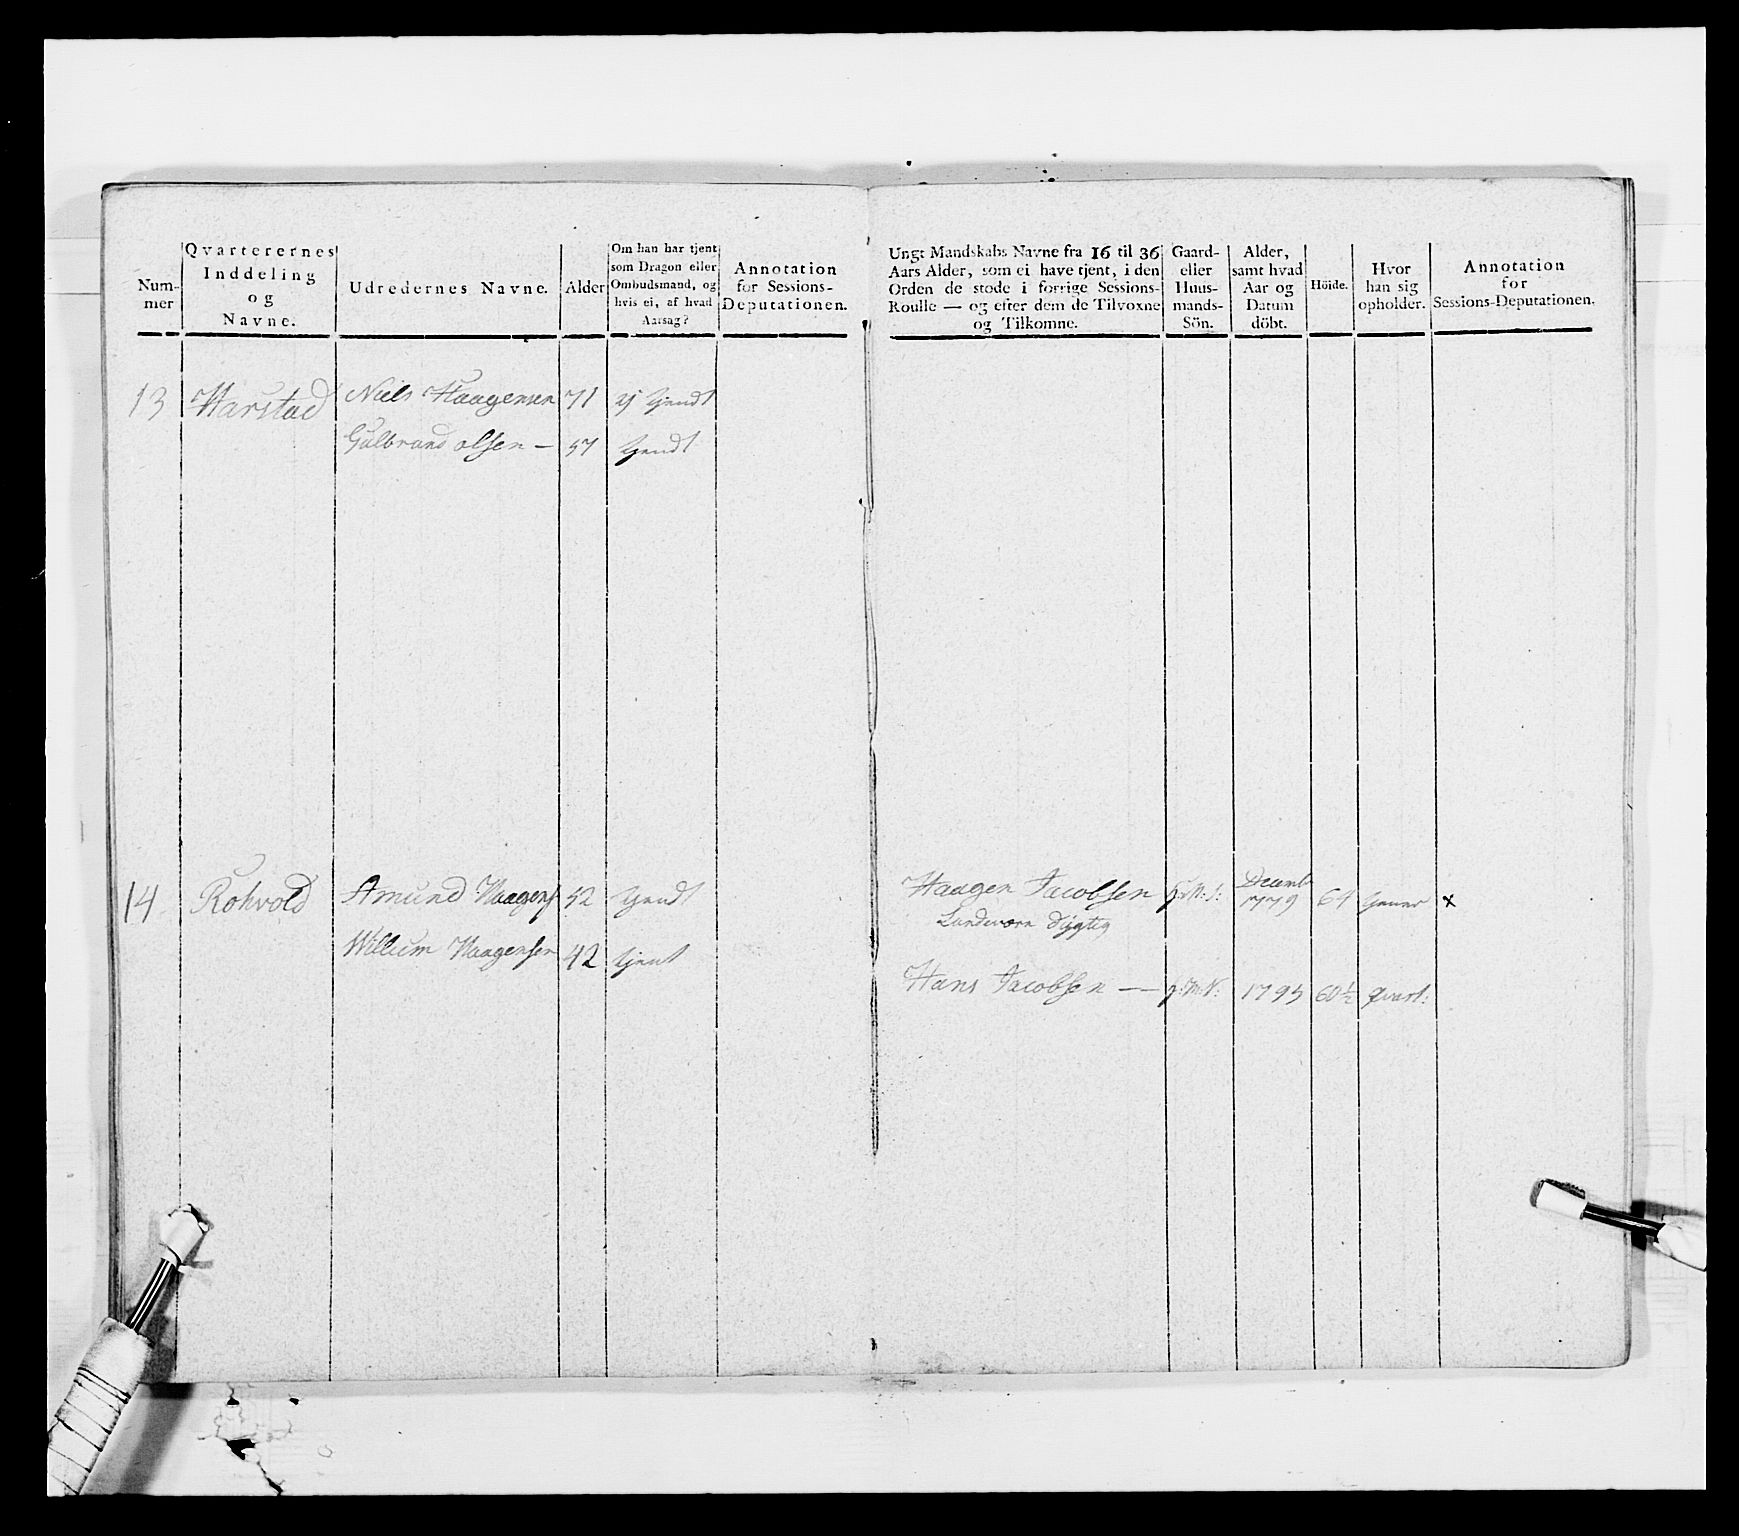 Num-
mer
Qvarterernes
Inddeling
og
Navne.
Udredernes Navne.
Alder
Om han har tjent
som Dragon eller
Ombudsmand, og
hvis ei, af hvad
Aarsag?
Annotation
for Sessions-
Deputationen.
Ungt Mandskabs Navne fra 16 til 36
Aars Alder, som ei have tjent, i den
Orden de stode i forrige Sessions-
Roulle — og efter dem de Tilvoxne
og Tilkomne.
Gaard-
eller
Huus-
mands-
Sön.
Alder,
samt hvad
Aar og
Datum
döbt.
Höide.
Hvor
han sig
opholder.
Annotation
for
Sessions-Deputationen.
13 Harstad Niels Haagensen 71 ej tjendt
Gulbrand olsen — 57 tjendt
14 Rohvold Amund Haagens 52 tjendt
Willum Haagensen 42 tjent
Haagen Jacobsen Decemb
1779 x
Landeværn dygtig
Hans Jacobsen — 1795 60½ Qvart: